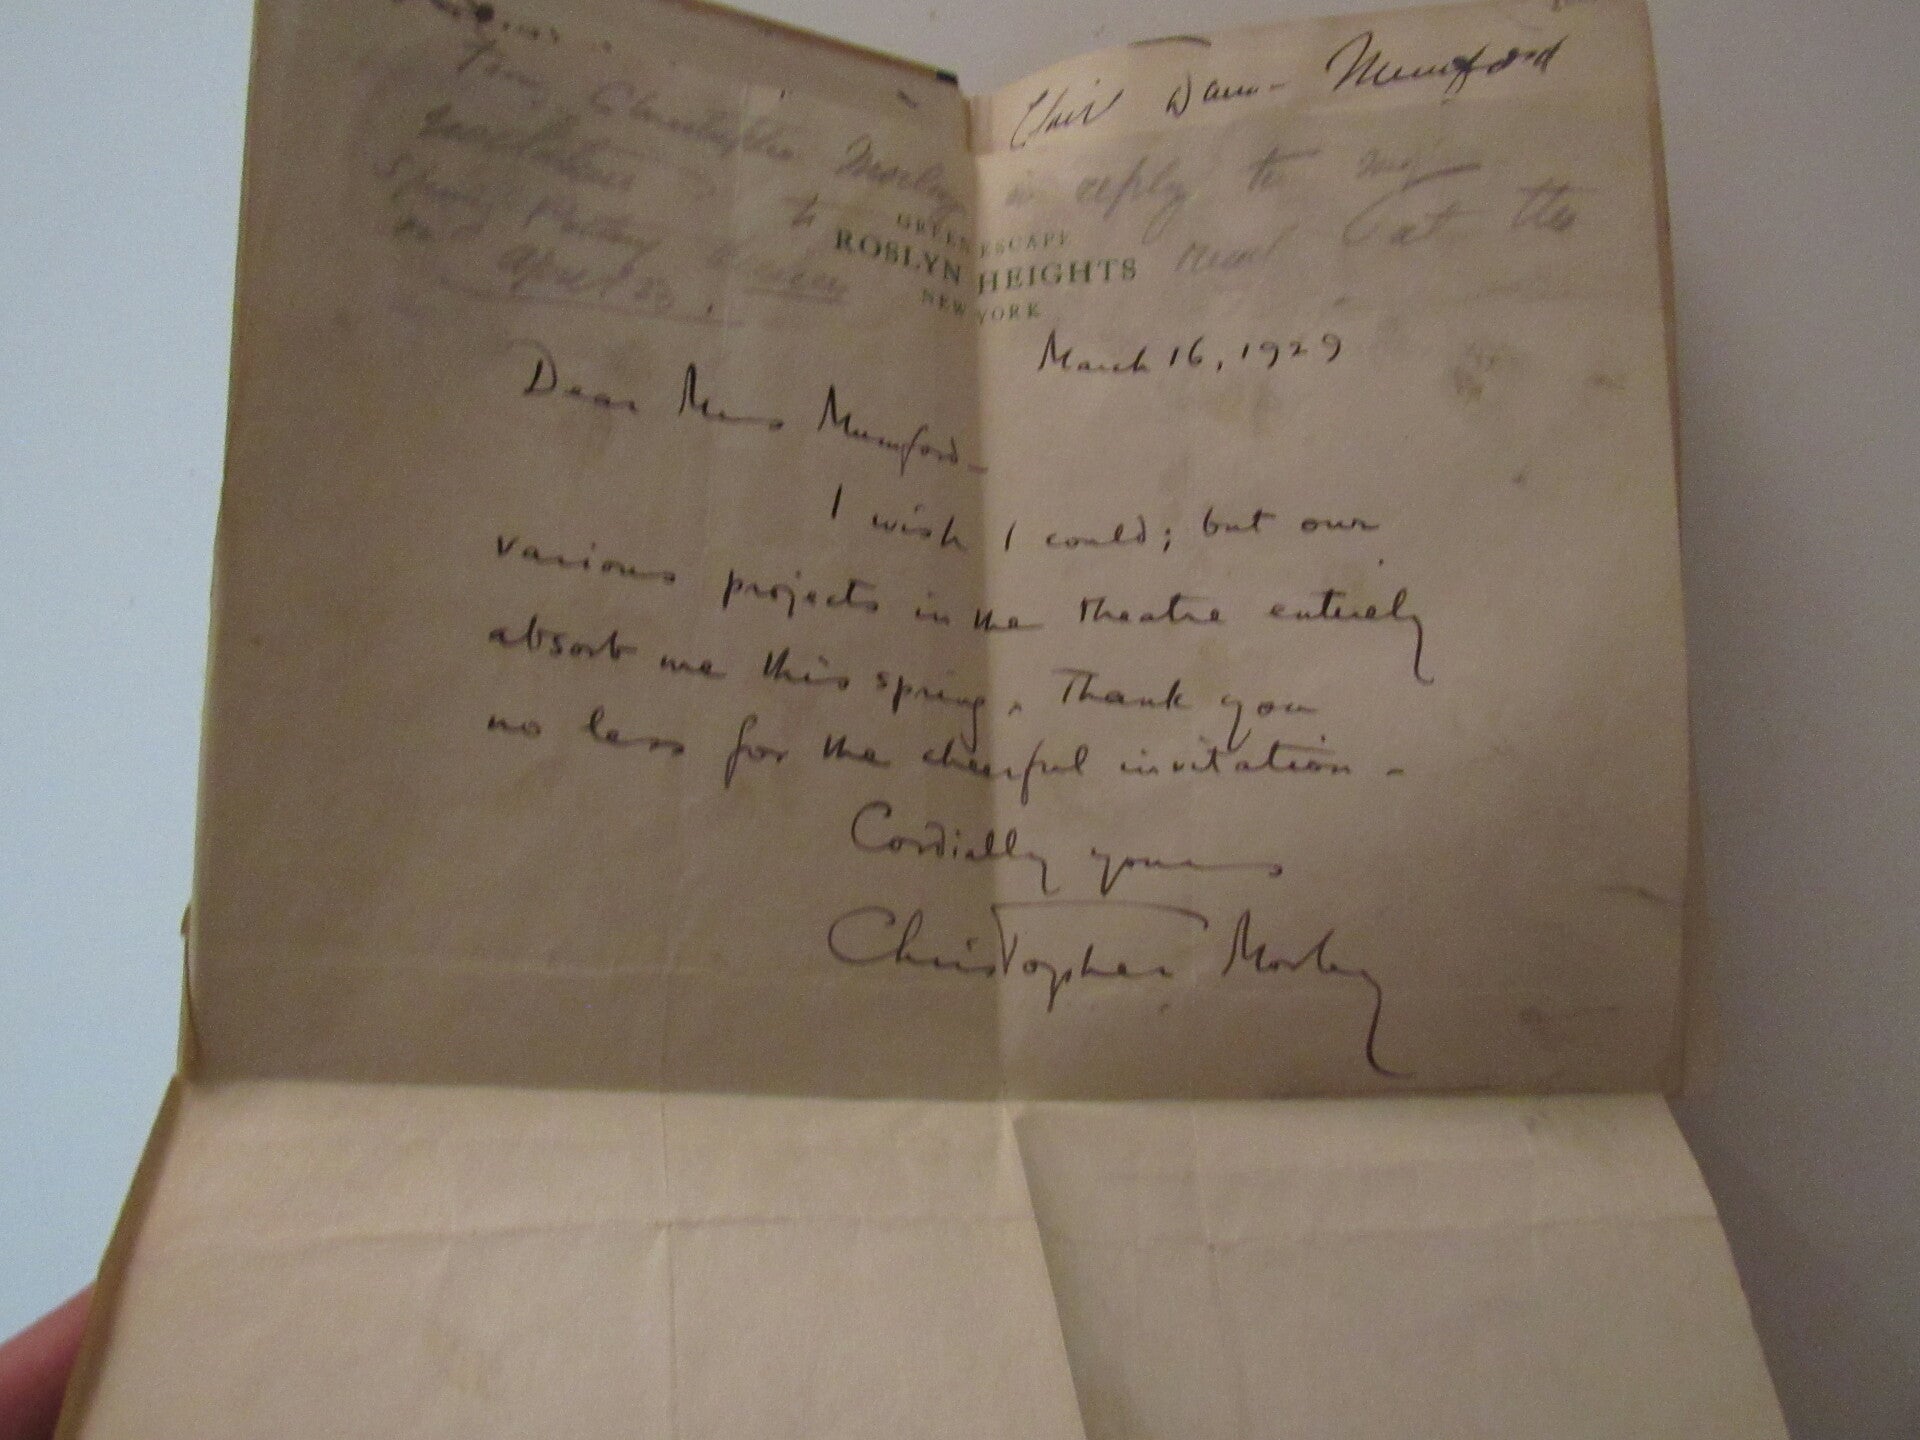 Mumford
from Christopher Morley in reply to my
invitation to read at the
Spring Poetry
on April 20.
GREEN ESCAPE
ROSLYN HEIGHTS
NEW YORK
March 16, 1929
Dear Mrs Mumford—
I wish I could; but our
various projects in the theatre entirely
absorb me this spring. Thank you
no less for the cheerful invitation —
Cordially yours
Christopher Morley